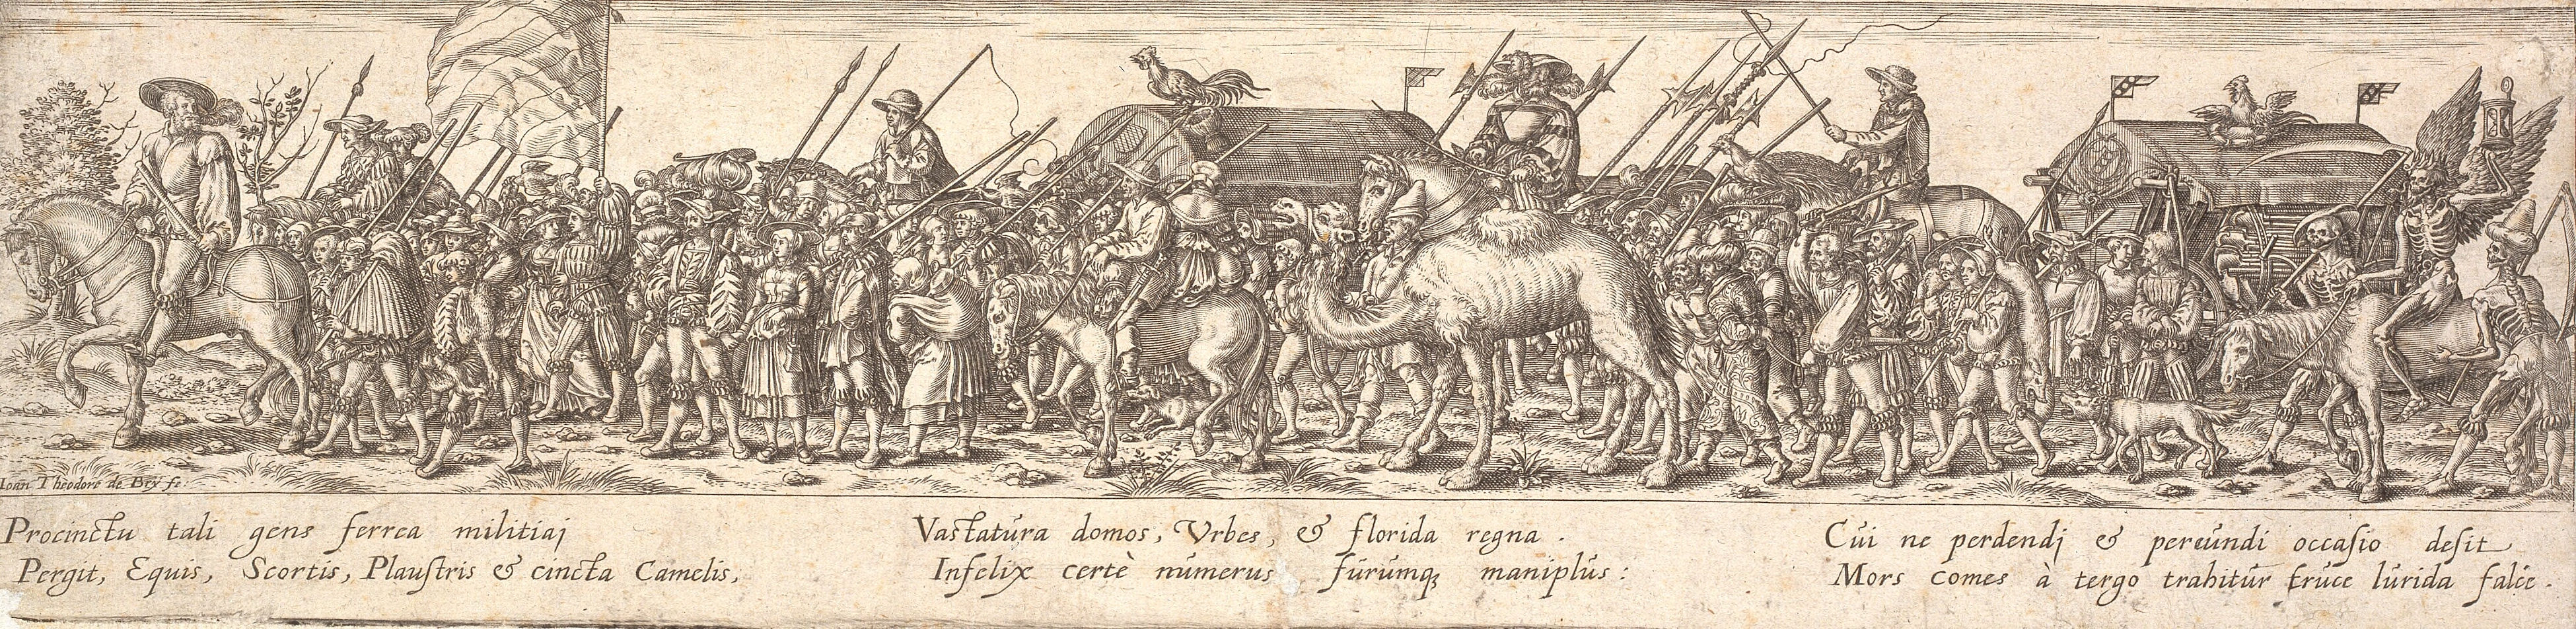 Ioan Theodore de Brÿ fe:
Procinctu tali gens ferrea militiaj
Pergit, Equis, Scortis, Plaustris & cincta Camelis,
Vastatura domos, Vrbes, & florida regna.
Infelix certè numerus furumq; maniplus:
Cui ne perdendj & pereundi occasio desit
Mors comes à tergo trahitur truce lurida falce.